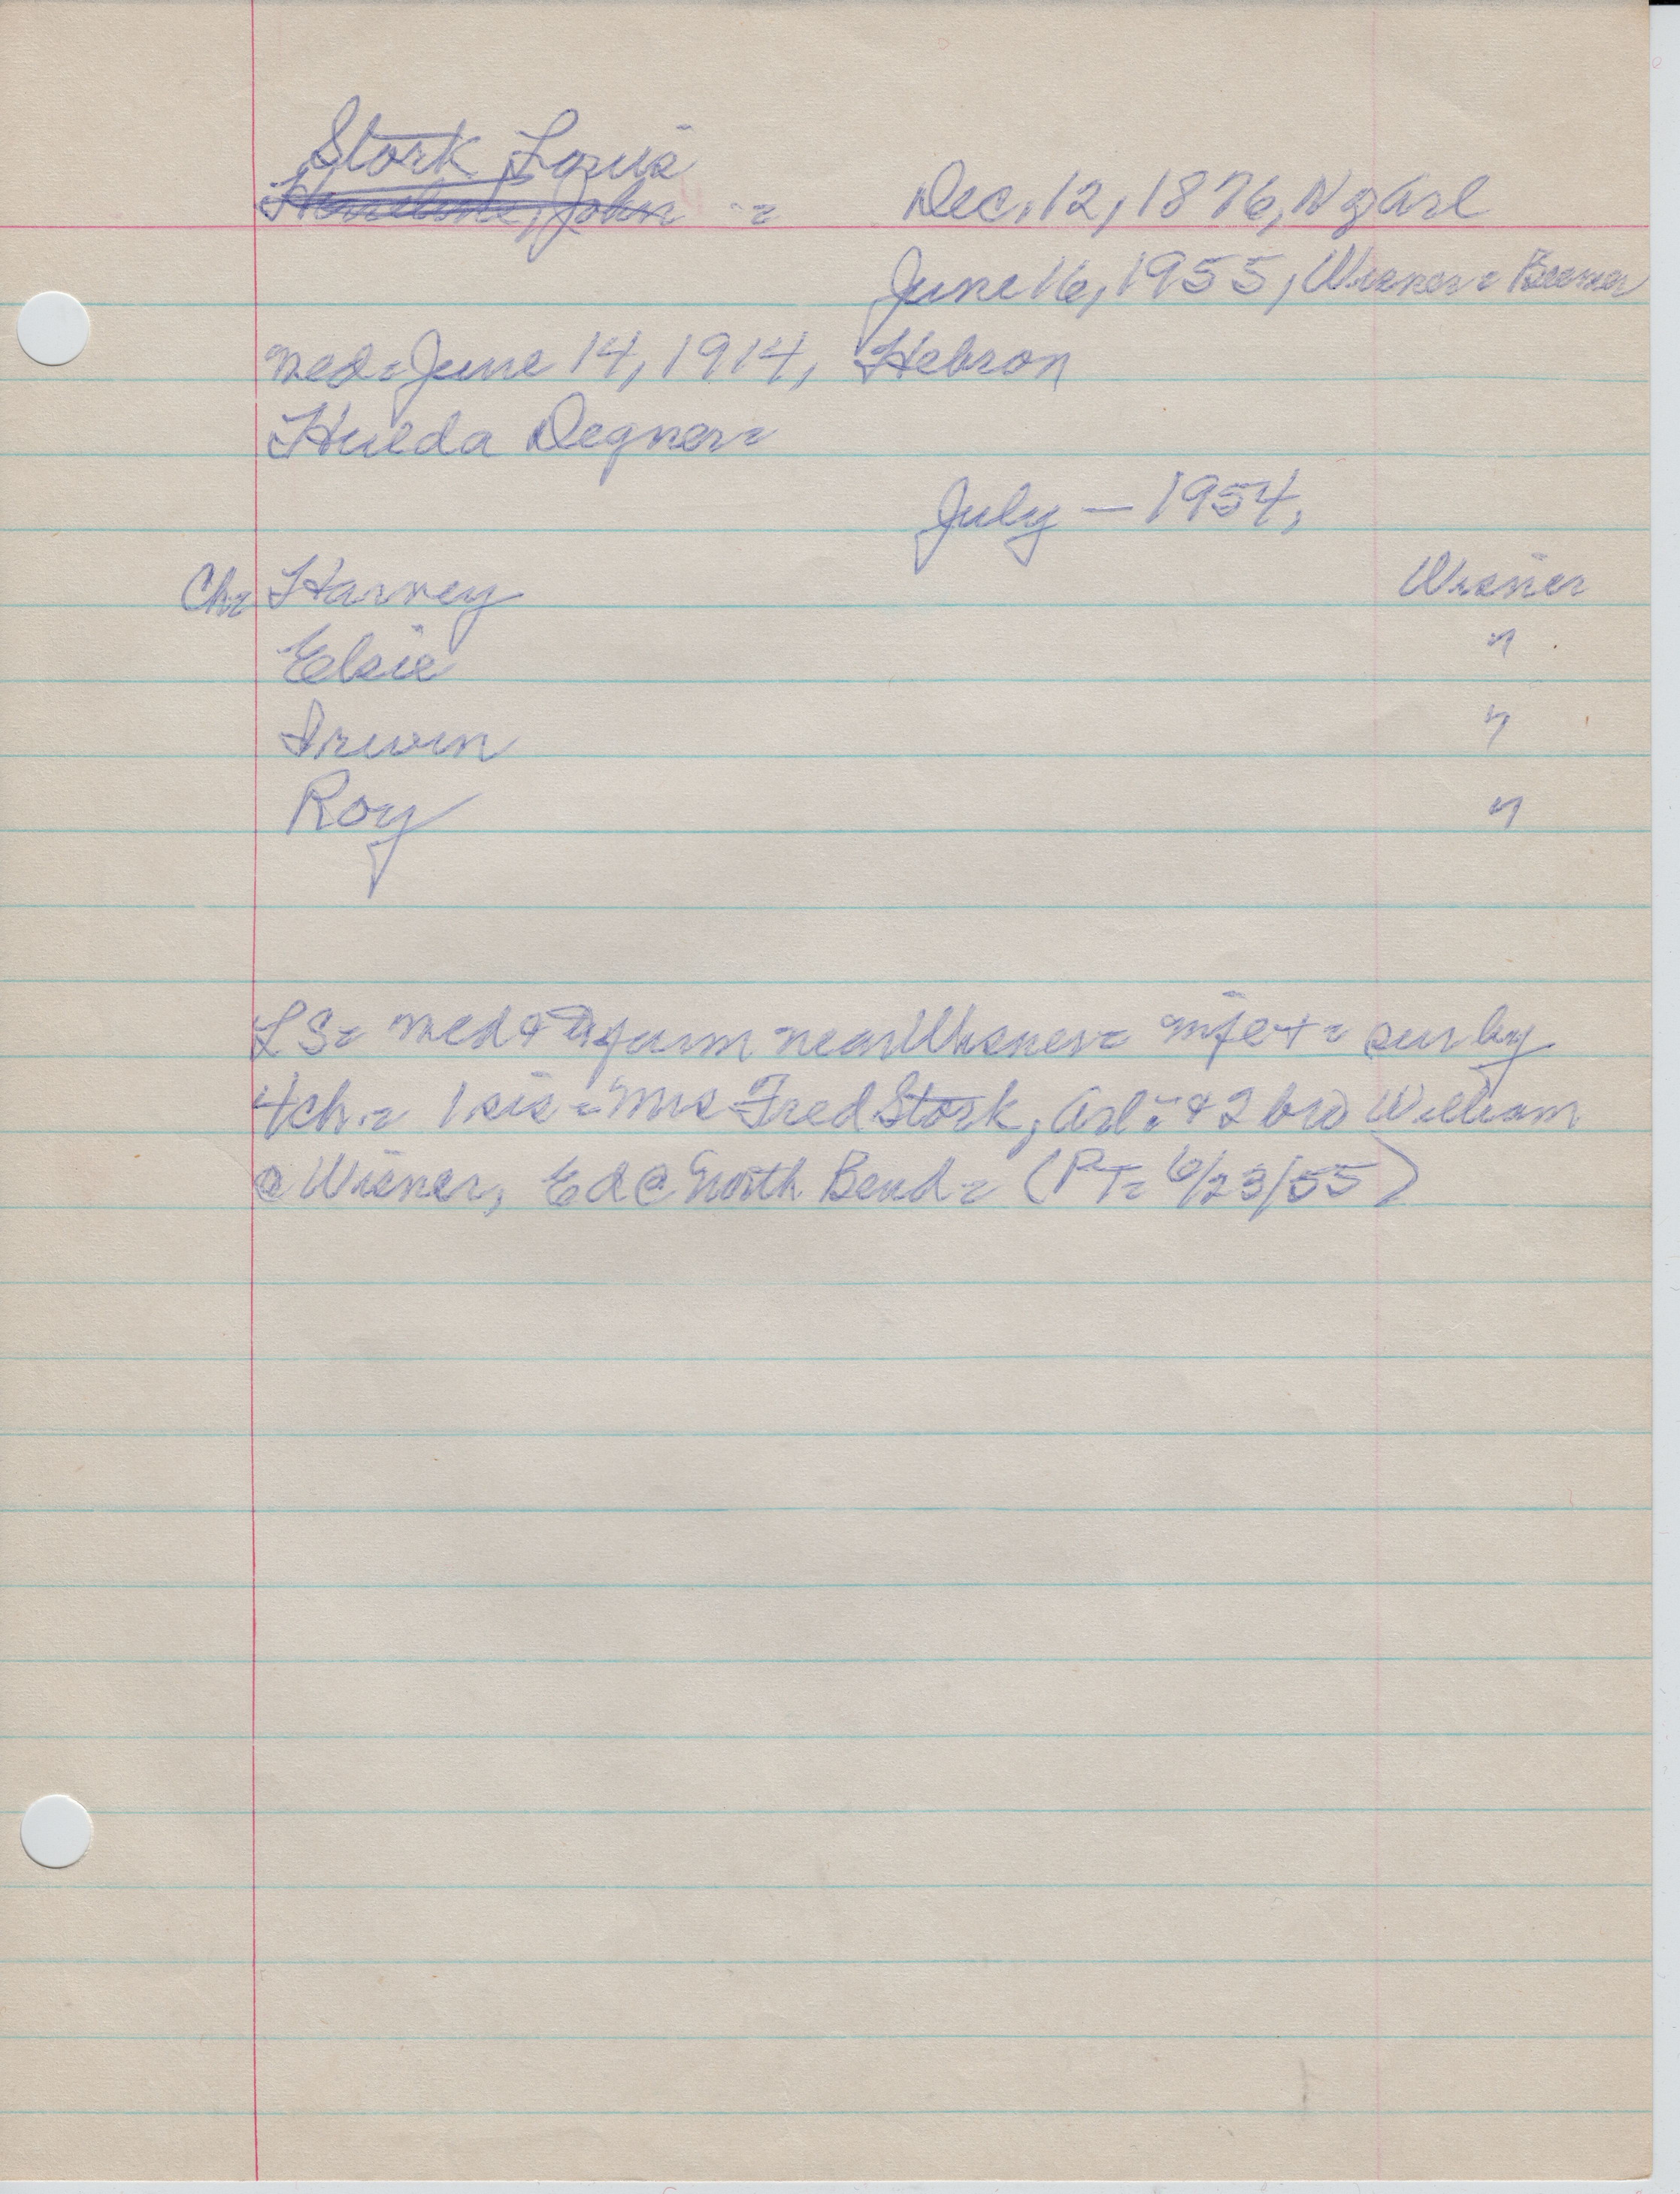 Stork Louis
John = Dec. 12, 1876, N of Arl
June 16, 1955, Wisner = Beemer
med = June 14, 1914, Hebron
Hulda Degner =
July — 1954,
Ch = Harvey Wisner
Elsie "
Irwin "
Roy "
LS = med & farm near Wisner = wife + = sur by
4 ch. = 1 sis = Mrs Fred Stork, Arl = & 2 bro William
@ Wisner, Ed @ North Bend = (PT = 6/23/55)